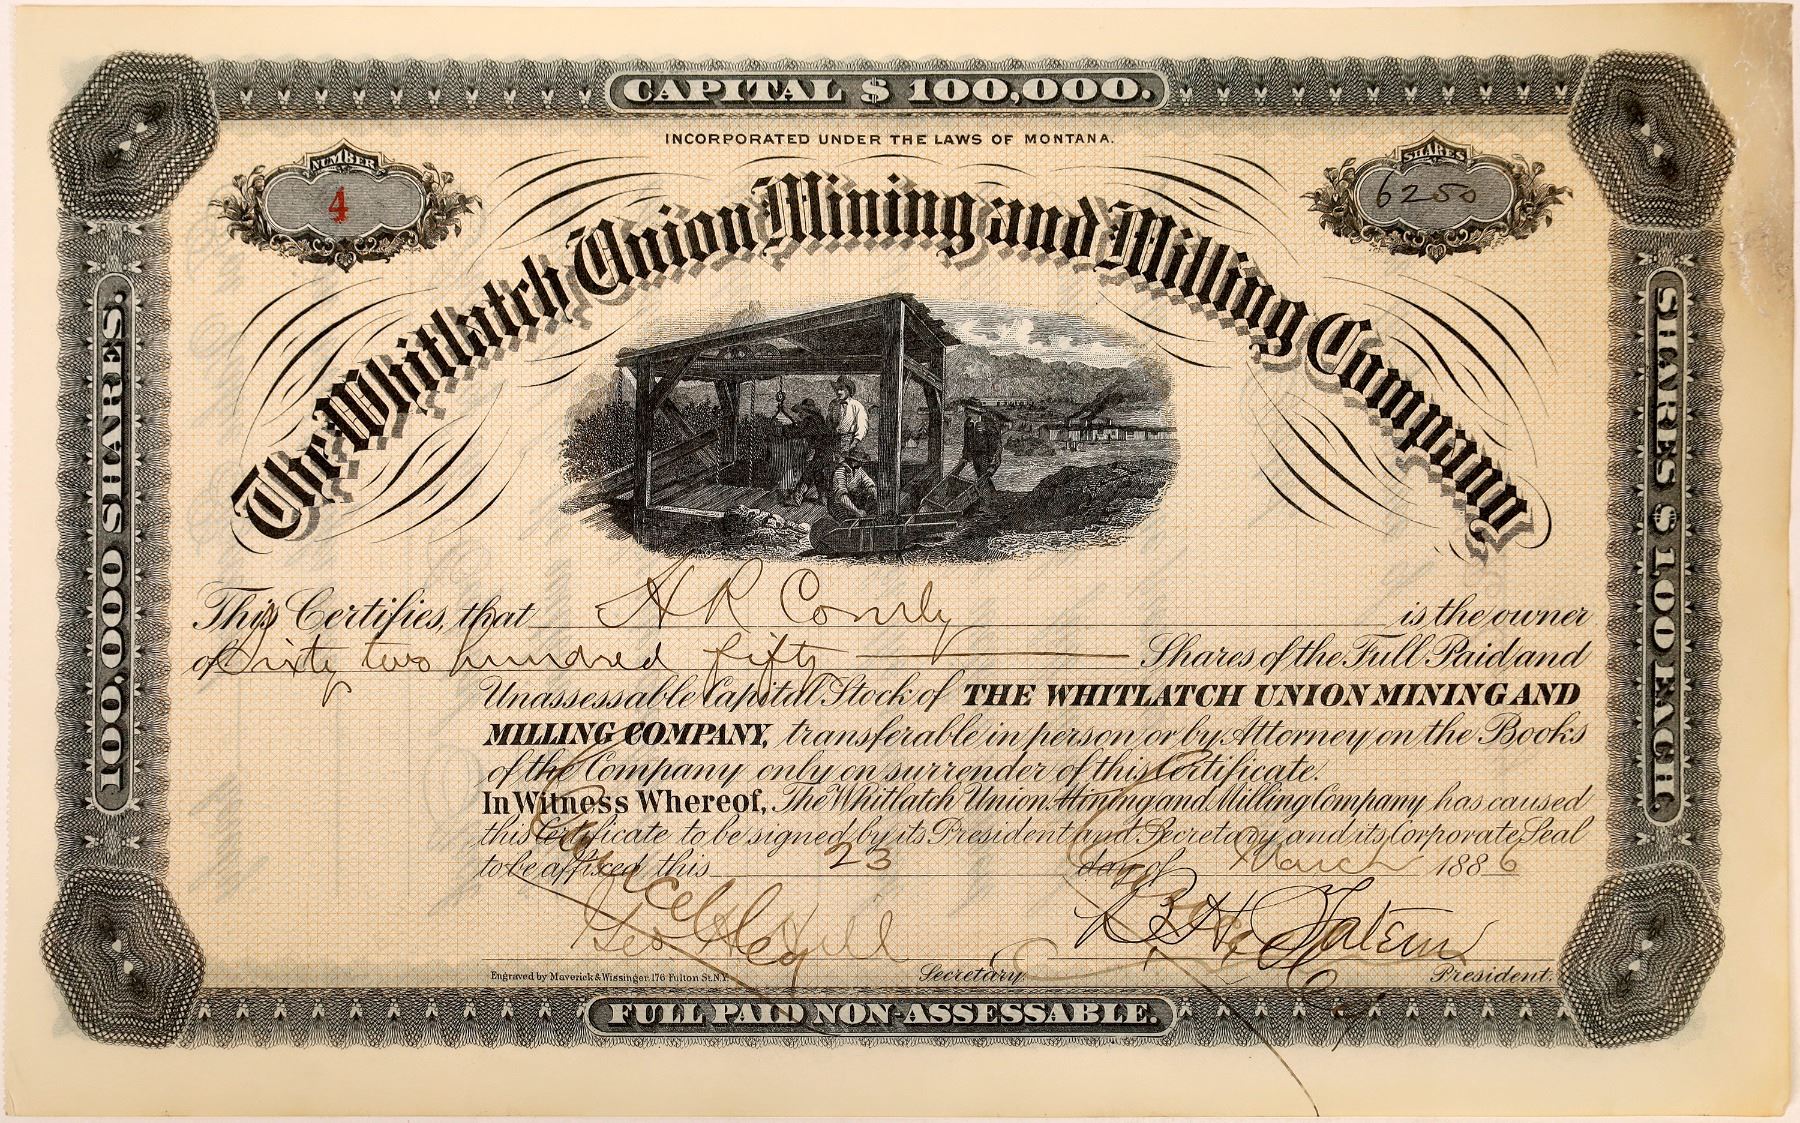 CAPITAL $ 100,000.
INCORPORATED UNDER THE LAWS OF MONTANA.
NUMBER
4
SHARES
6250
The Whitlatch Union Mining and Milling Company
100,000 SHARES.
SHARES $ 1.00 EACH.
This Certifies, that H R Comly is the owner
of Sixty two hundred fifty Shares of the Full Paid and
Unassessable Capital Stock of THE WHITLATCH UNION MINING AND
MILLING COMPANY, transferable in person or by Attorney on the Books
of the Company only on surrender of this Certificate.
In Witness Whereof, The Whitlatch Union Mining and Milling Company has caused
this Certificate to be signed by its President and Secretary and its Corporate Seal
to be affixed this 23 day of March 1886
Cancelled
Geo H Hill
Engraved by Maverick & Wissinger. 176 Fulton St. N.Y.
Secretary.
President.
FULL PAID NON-ASSESSABLE.